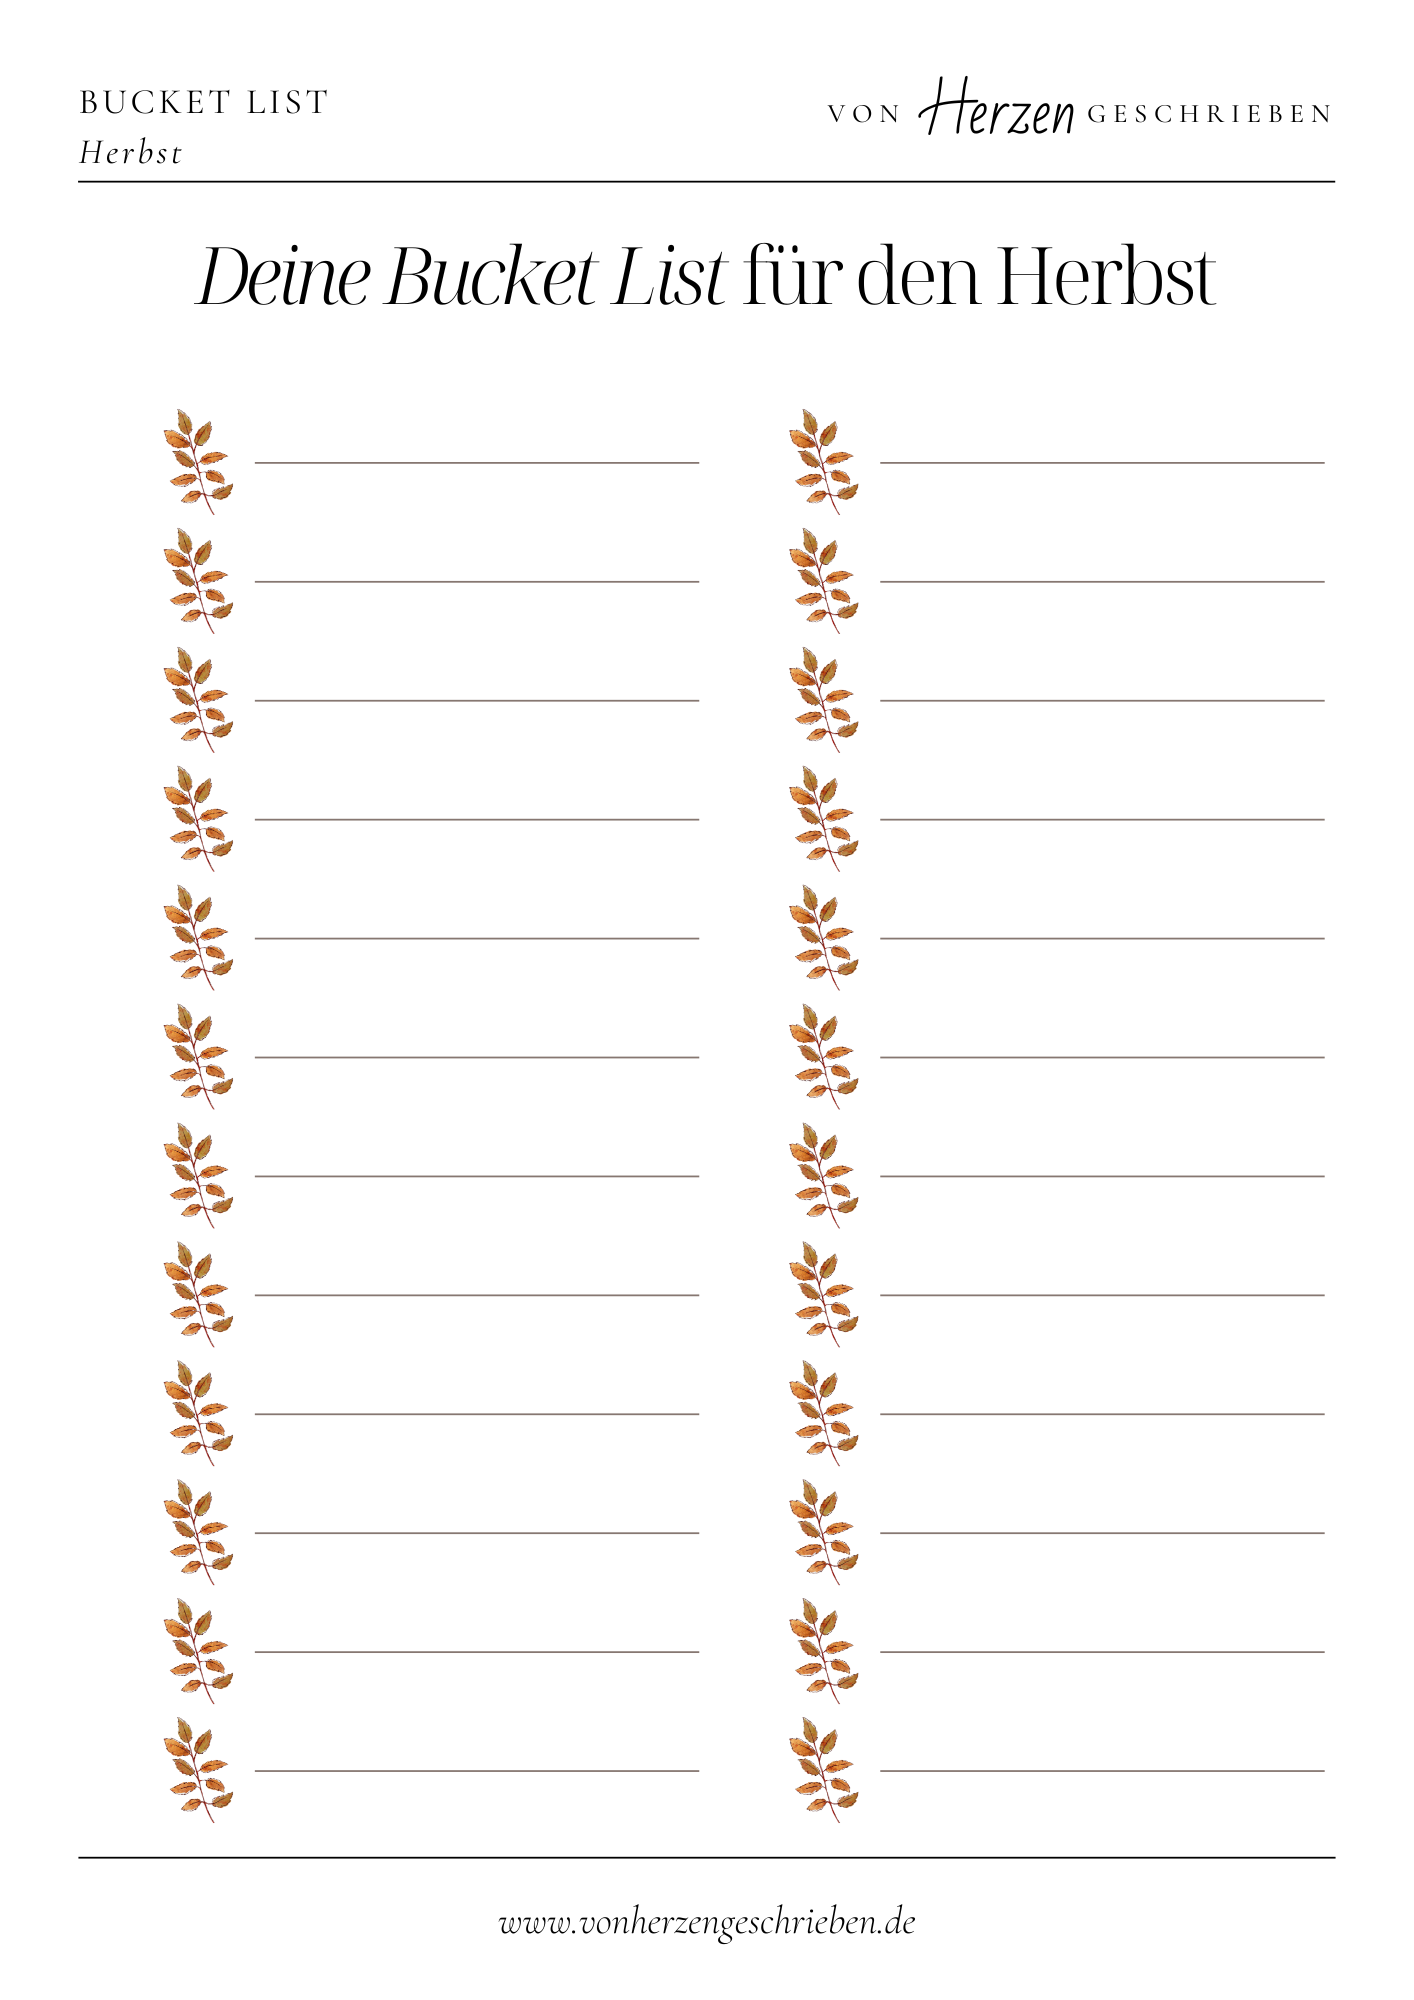 BUCKET LIST
Herbst
VON Herzen GESCHRIEBEN
Deine Bucket List für den Herbst
www.vonherzengeschrieben.de